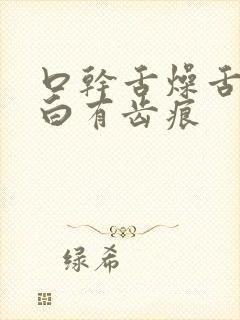 口幹舌燥舌
白有齿痕
绿希